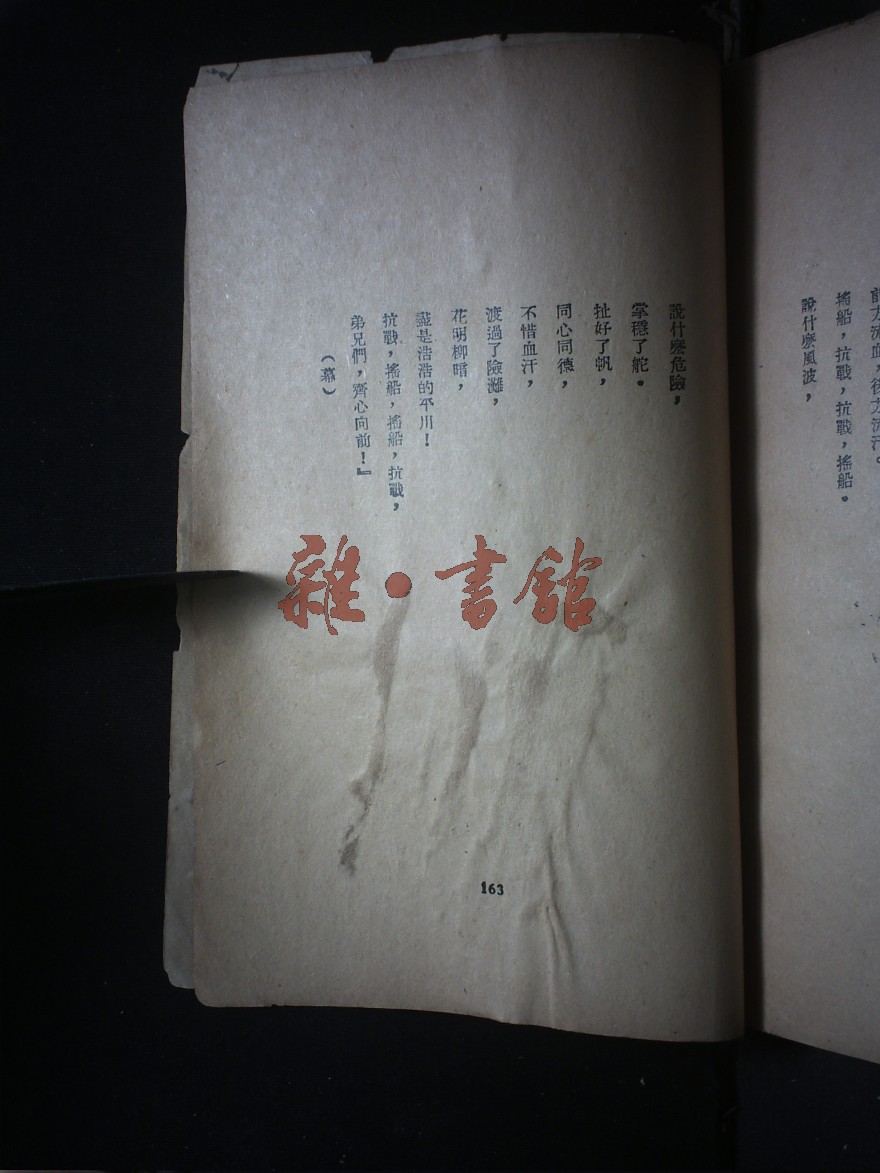 前方流血，後方流汗。
搖船，抗戰，抗戰，搖船。
說什麽風波，
說什麽危險，
掌穩了舵。
扯好了帆，
同心同德，
不惜血汗，
渡過了險灘，
花明柳暗，
盡是浩浩的平川！
抗戰，搖船，搖船，抗戰，
弟兄們，齊心向前！』
（幕）
163
雜·書館